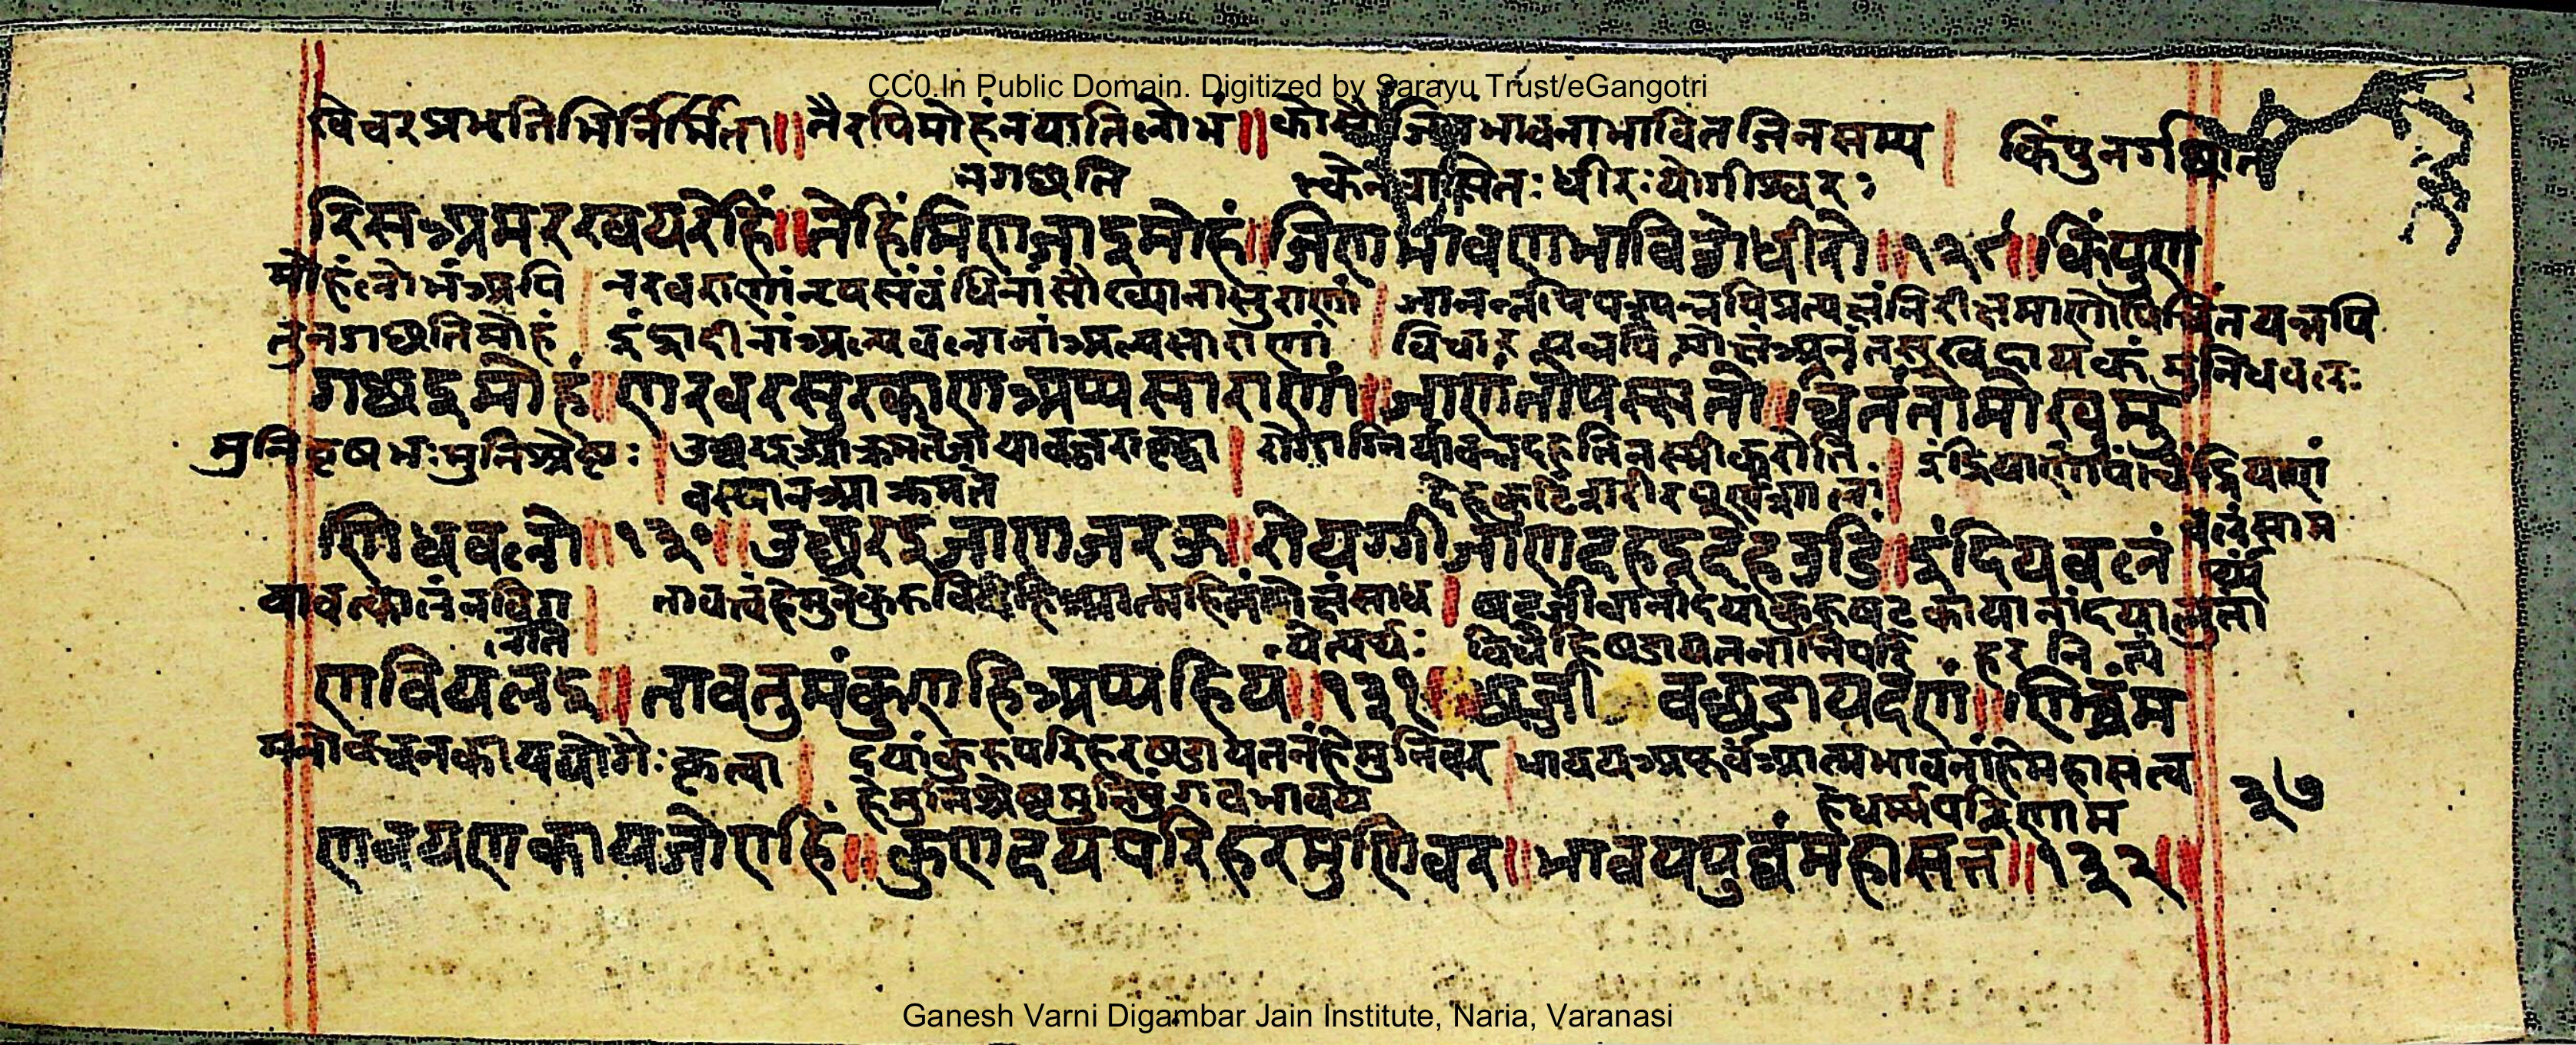 CC0.In Public Domain. Digitized by Sarayu Trust/eGangotri
खेचरप्रभृतिभिर्निर्मिता॥ तैरपि मोहं न याति लोभं॥ कोसौ जिनभावनाभावित जिनसम्य । किं पुन
न गच्छति क्त्वेन वासितः धीरः योगीश्वरः
रिसअमरखयरेहिं॥ तेहिं मि ण जाइ मोहं॥ जिणभावणभाविओ धीरो॥ १२९॥ किं पुण
मोहं लोभं अपि । नरवराणां नृपसंबंधिनां सौख्यानां सुराणां । जानन्नपि पश्यन्नपि प्रत्यक्षं निरीक्षमाणोपि चिंतयन्नपि
तु न गच्छति मोहं इंद्रादीनां अल्पसाराणां विचार मोक्षं अनंतसुखदायकं मुनिधवलः
गच्छइ मोहं॥ णरवरसुरक्खाण अप्पसाराणं॥ जाणंतो पस्संतो॥ चिंतंतो मोखमु
मुनिवृषभः मुनिश्रेष्ठः । यावज्जरा वृद्धा । रोगाग्निर्यावन्न दहति भस्मीकरोति । इंद्रियाणां पंचेंद्रियाणां
वस्था न आक्रमते देहकुटिं शरीर
णिधवलो॥ १३०॥ उच्छरइ जा ण जरऊ॥ रोयग्गी जा ण डहइ देहउडिं॥ इंदियबलं
बलं साम
र्थ्यं
यावत्कालं न विग । तावत्त्वं हे मुने कुरु आत्महितं मोक्षं साध । षट्जीवानां दयां कुरु षट्कायानां दयां
लति येत्यर्थः षडायतनानि परि हर नित्यं
ण वियलइ॥ ताव तुमं कुणहि अप्पहियं॥ १३१॥ छज्जी वछडायदणं॥ णिच्चं म
मनोवचनकाययोगैः कृत्वा । दयां कुरु परिहर षडायतनं हे मुनिवर । भावय अपूर्वं आत्मभावनां हे महासत्व
३७
हे मुनिश्रेष्ठ मुनिपुंगव भावय हे धर्म्मपरिणाम
णवयणकायजोएहिं॥ कुण दय परिहर मुणिवर॥ भावय पुव्वं महासत्त॥ १३२॥
Ganesh Varni Digambar Jain Institute, Naria, Varanasi